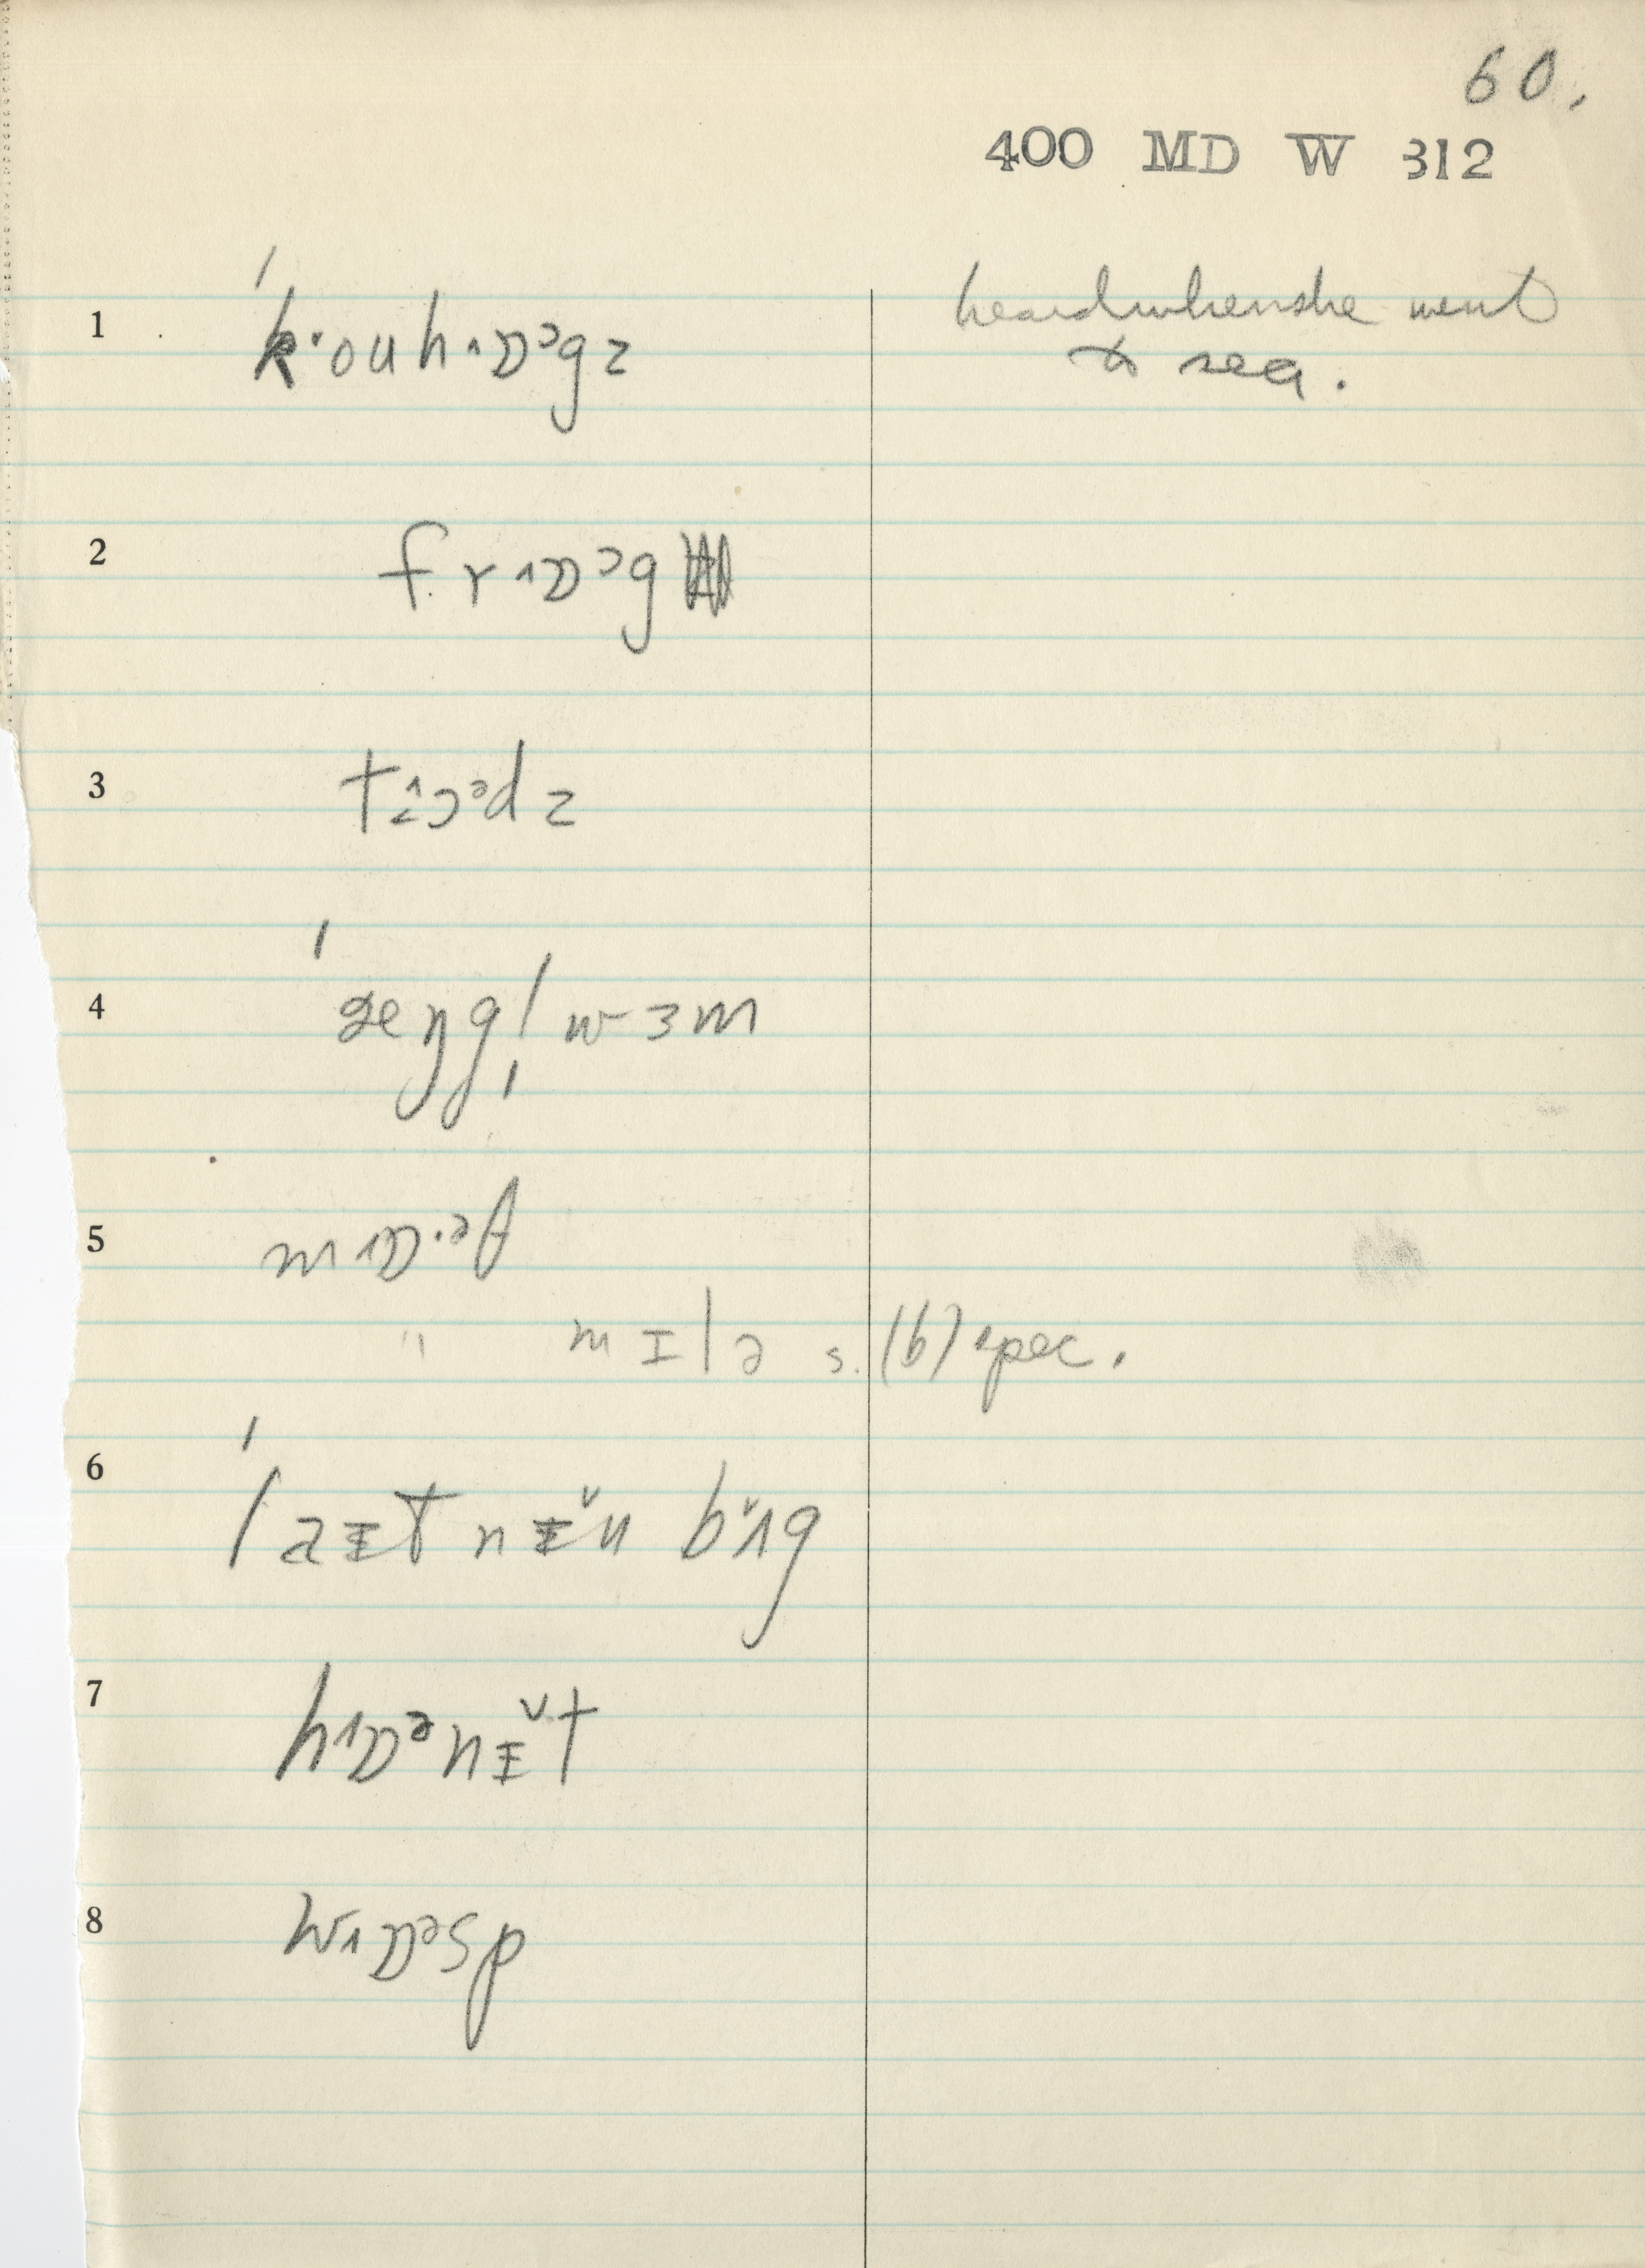 60.
400 MD W 312
1 ˈk·ouh˄ɒᵓgz heard when she went
to sea.
2 fr˄ɒᵓg
3 t
4 ˈæŋgl̩wɜm
5 mɒ·ᵊʃ
" mɪlə s. (b) spec.
6 ˈlaɪtnɪ̆n bʌ̆g
7 hɒᵊnɪ̆t
8 wɒᵊsp